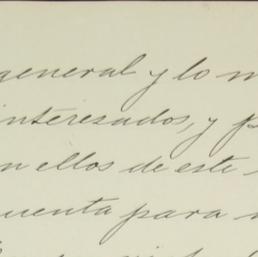 general y lo
interesados, y
ellos de este
para